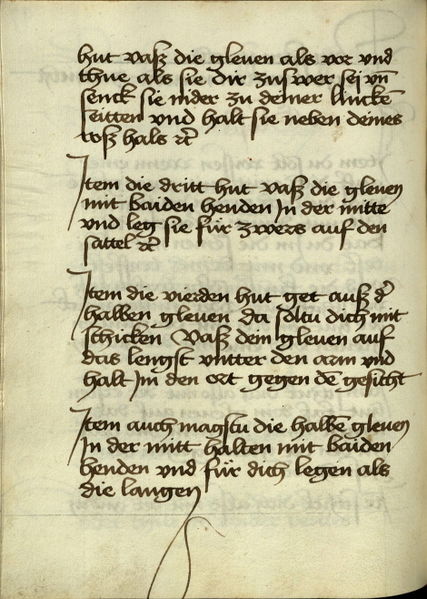 hut vasß die gleuen als vor vnd
thue als sie dir zuswer sej vn̄
senck sie nider zu deiner lincke͂
seitten vnd halt sie neben deines
roß hals ꝛc̄
Item die dritt hut vasß die gleuen
mit baiden henden In der mitte
vnd leg sie für zwers auf den
sattel ꝛc̄
Item die vierden hut get auß d'
halben gleuen da soltu dich mit
schicken Vasß dein gleuen auf
das lengst vntter den arm vnd
halt Im den ort gegen de͂ gesicht
Item auch magstu die halbe͂ gleuen
In der mitt halten mit baiden
henden vnd für dich legen als
die langen